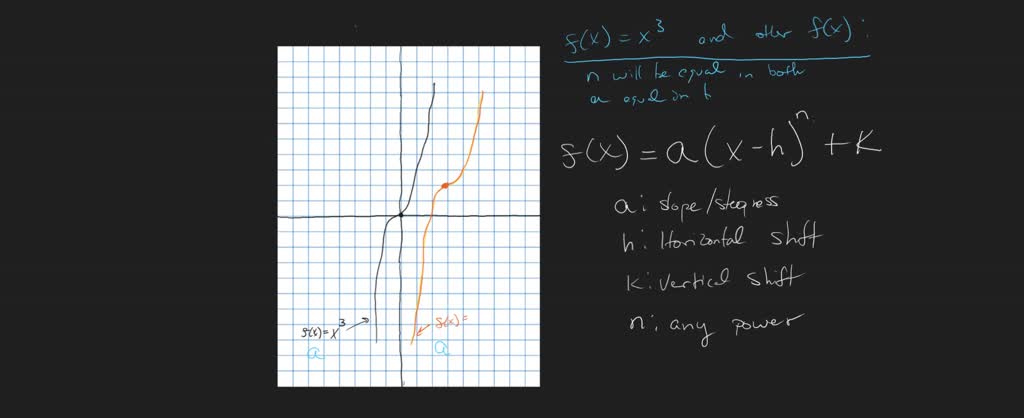 f(x) = x³ and other f(x):
n will be equal in both
a equal in b
f(x) = a(x-h)ⁿ + K
a: slope/steepness
h: Horizontal shift
K: Vertical shift
n: any power
f(x) = x³
a
f(x) =
a